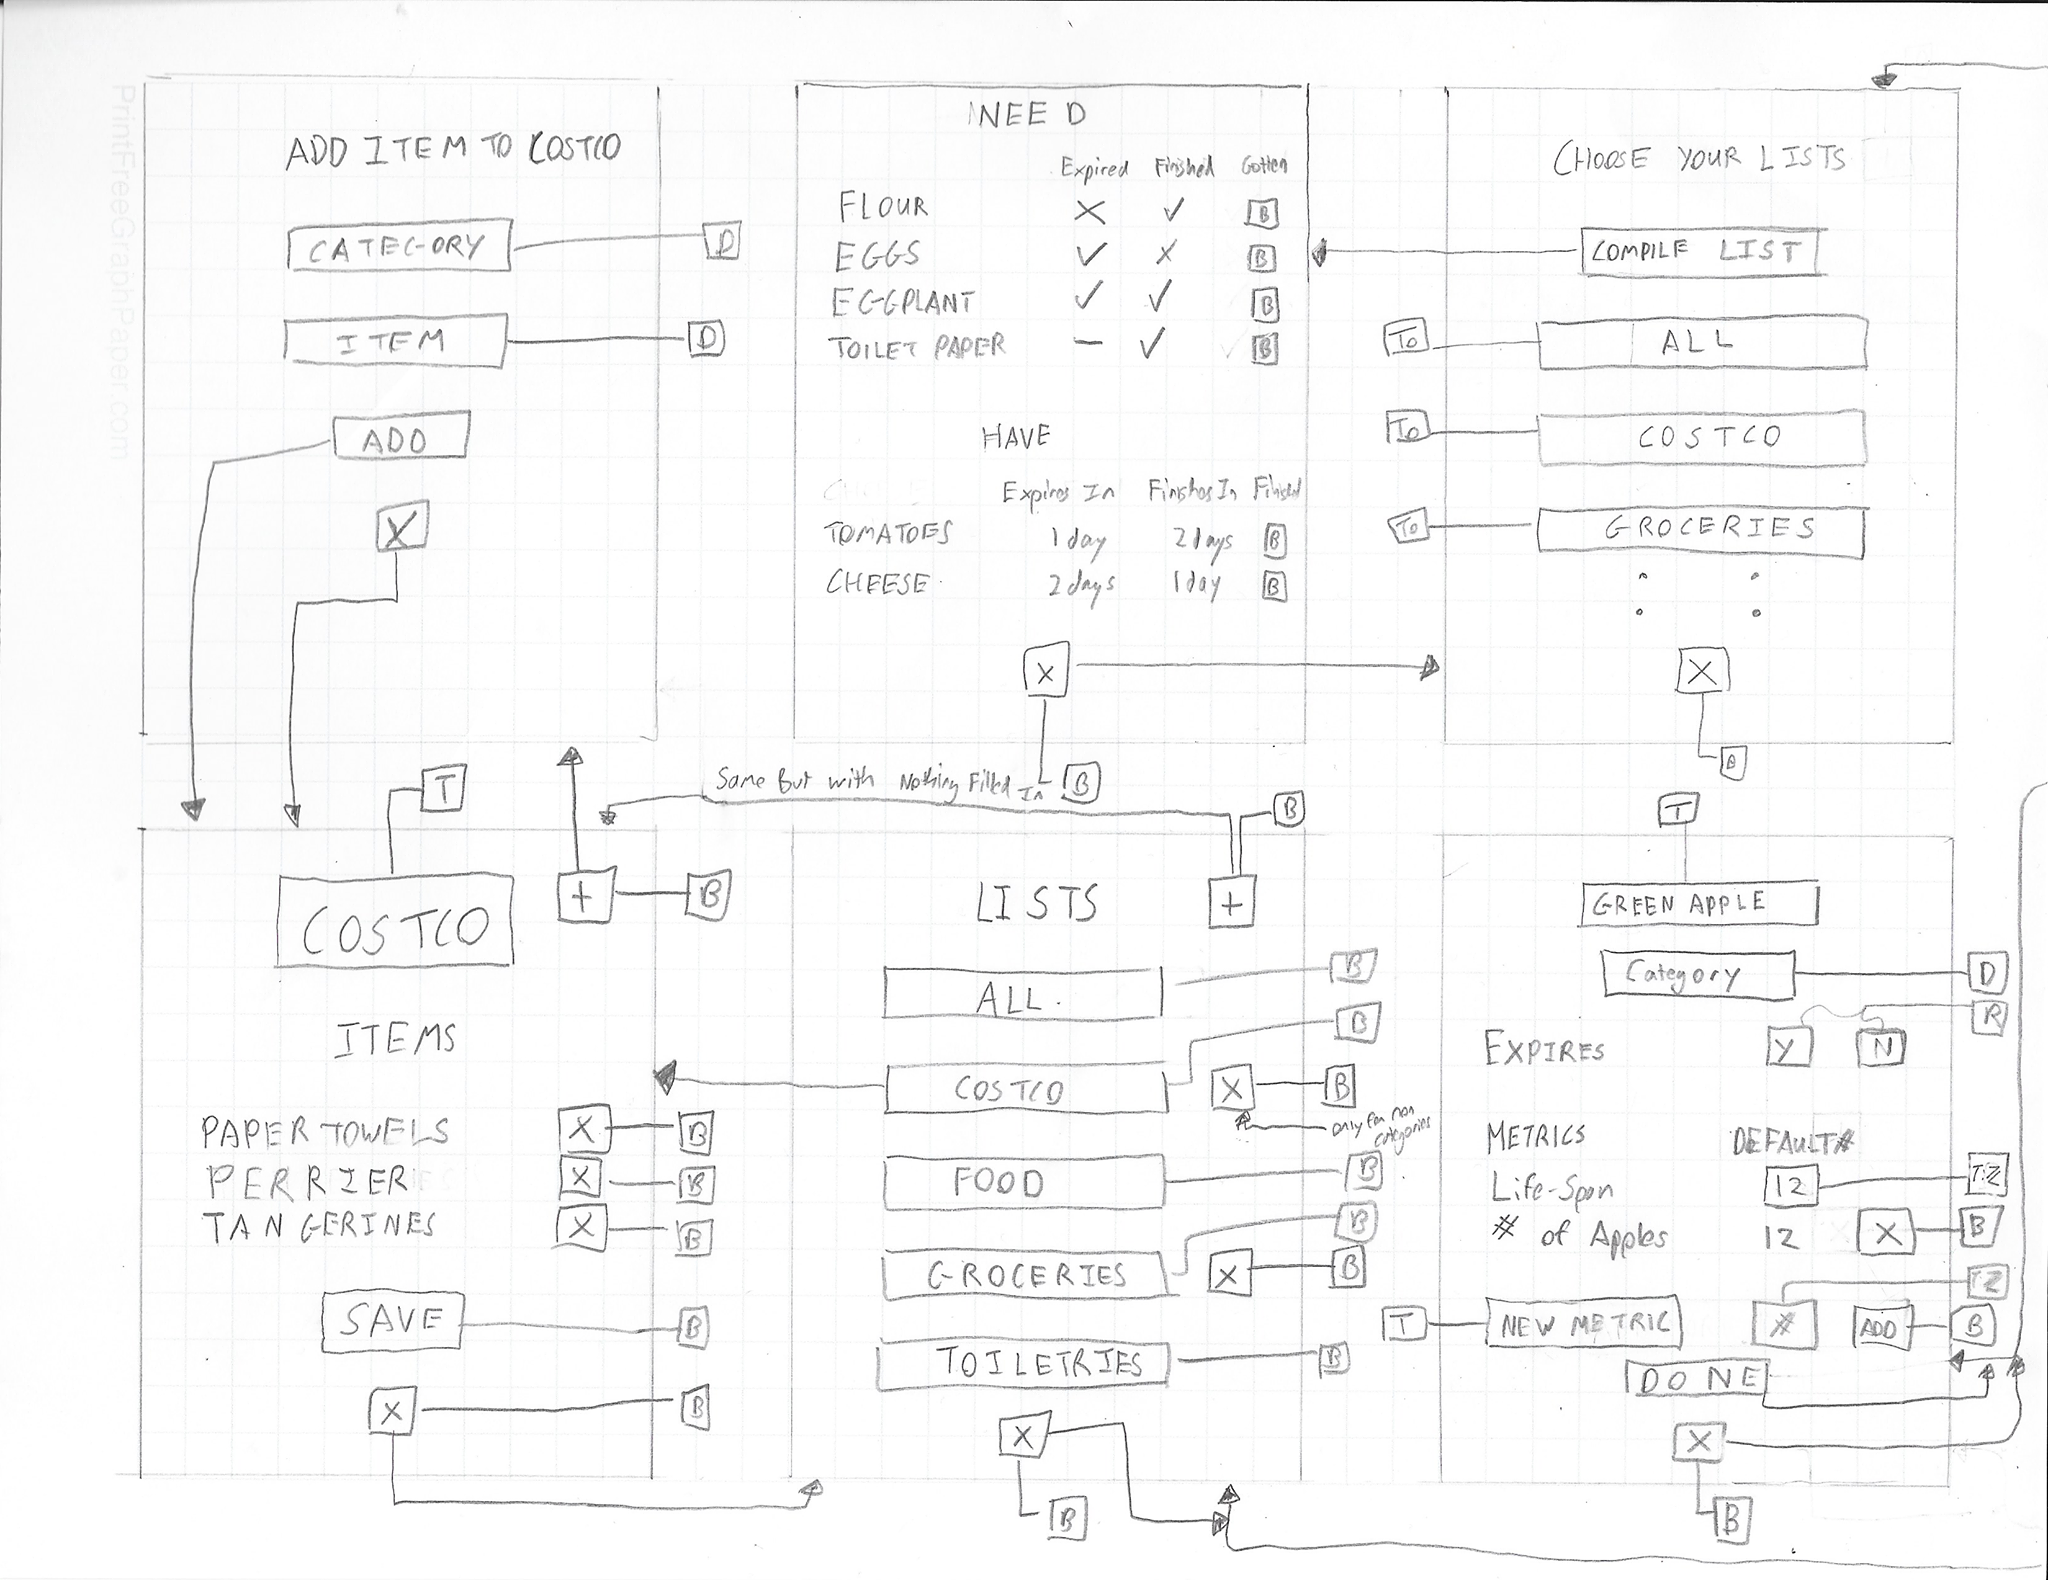 PrintFreeGraphPaper.com
ADD ITEM TO COSTCO
CATEGORY D
ITEM D
ADD
X
NEED
Expired Finished Gotten
FLOUR X ✓ B
EGGS ✓ X B
EGGPLANT ✓ ✓ B
TOILET PAPER — ✓ B
HAVE
Expires In Finishes In Finished
TOMATOES 1 day 2 days B
CHEESE 2 days 1 day B
X
B
CHOOSE YOUR LISTS
COMPILE LIST
To ALL
To COSTCO
To GROCERIES
X
B
T
COSTCO
+ B
ITEMS
PAPER TOWELS X B
PERRIER X B
TANGERINES X B
SAVE B
X B
Same But with Nothing Filled In
B
LISTS +
ALL B
COSTCO B
X B
only for non categories
FOOD B
GROCERIES B
X B
TOILETRIES B
X
B
T
GREEN APPLE
Category D
EXPIRES Y N R
METRICS DEFAULT#
Life-Span 12 T:Z
# of Apples 12 X B
T NEW METRIC # T:Z
ADD B
DONE
X
B